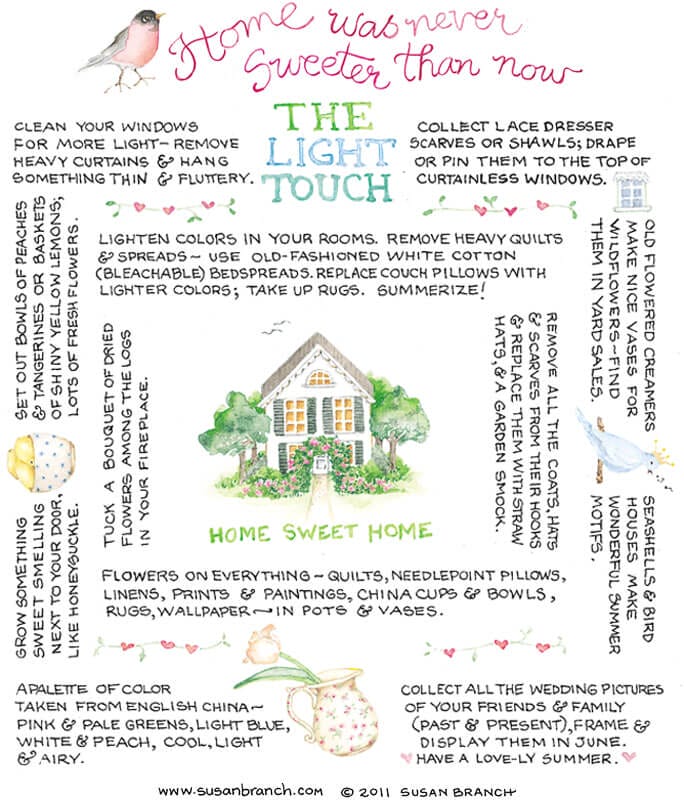 Home was never
Sweeter than now
THE
LIGHT
TOUCH
CLEAN YOUR WINDOWS
FOR MORE LIGHT~ REMOVE
HEAVY CURTAINS & HANG
SOMETHING THIN & FLUTTERY.
COLLECT LACE DRESSER
SCARVES OR SHAWLS; DRAPE
OR PIN THEM TO THE TOP OF
CURTAINLESS WINDOWS.
LIGHTEN COLORS IN YOUR ROOMS. REMOVE HEAVY QUILTS
& SPREADS~ USE OLD-FASHIONED WHITE COTTON
(BLEACHABLE) BEDSPREADS. REPLACE COUCH PILLOWS WITH
LIGHTER COLORS; TAKE UP RUGS. SUMMERIZE!
SET OUT BOWLS OF PEACHES
& TANGERINES OR BASKETS
OF SHINY YELLOW LEMONS;
LOTS OF FRESH FLOWERS.
OLD FLOWERED CREAMERS
MAKE NICE VASES FOR
WILDFLOWERS~FIND
THEM IN YARD SALES.
TUCK A BOUQUET OF DRIED
FLOWERS AMONG THE LOGS
IN YOUR FIREPLACE.
REMOVE ALL THE COATS, HATS
& SCARVES FROM THEIR HOOKS
& REPLACE THEM WITH STRAW
HATS, & A GARDEN SMOCK.
HOME SWEET HOME
GROW SOMETHING
SWEET SMELLING
NEXT TO YOUR DOOR,
LIKE HONEYSUCKLE.
SEASHELLS & BIRD
HOUSES MAKE
WONDERFUL SUMMER
MOTIFS.
FLOWERS ON EVERYTHING~ QUILTS, NEEDLEPOINT PILLOWS,
LINENS, PRINTS & PAINTINGS, CHINA CUPS & BOWLS,
RUGS, WALLPAPER~ IN POTS & VASES.
A PALETTE OF COLOR
TAKEN FROM ENGLISH CHINA~
PINK & PALE GREENS, LIGHT BLUE,
WHITE & PEACH, COOL, LIGHT
& AIRY.
COLLECT ALL THE WEDDING PICTURES
OF YOUR FRIENDS & FAMILY
(PAST & PRESENT), FRAME &
DISPLAY THEM IN JUNE.
HAVE A LOVE-LY SUMMER.
www.susanbranch.com © 2011 SUSAN BRANCH